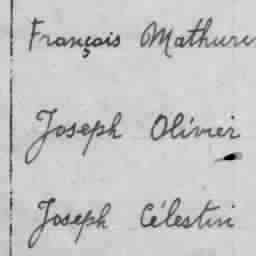 François Mathurin
Joseph Olivier
Joseph Célestin